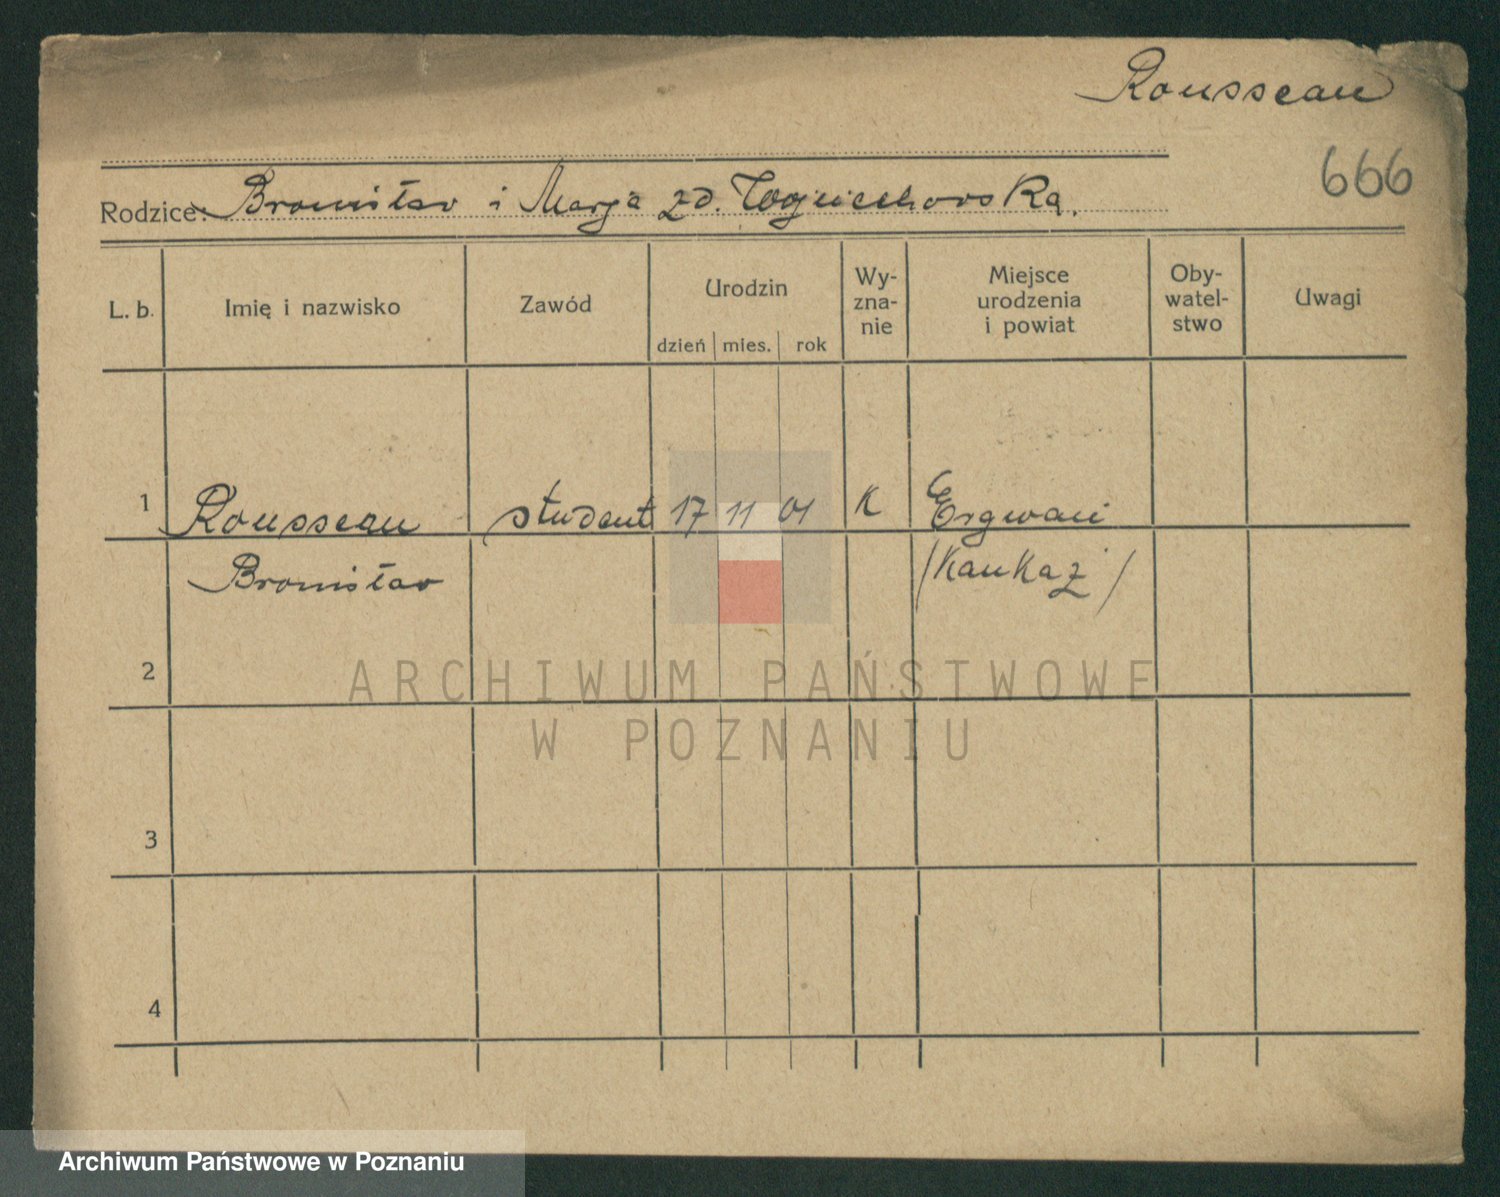 Rousseau
666
Rodzice: Bronisław i Marja zd. Wojciechowska.
L. b. Imię i nazwisko Zawód Urodzin dzień mies. rok Wy- zna- nie Miejsce urodzenia i powiat Oby- watel- stwo Uwagi
1 Rousseau student 17 11 01 K Ergwani
Bronisław /Kaukaz/
2
ARCHIWUM PAŃSTWOWE
W POZNANIU
3
4
Archiwum Państwowe w Poznaniu